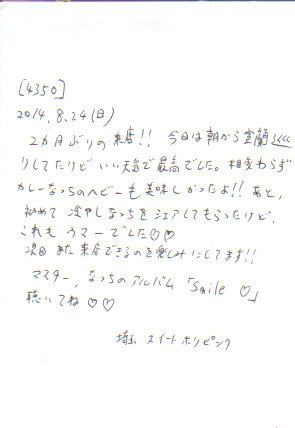 [4350]
2014.8.24(日)
2カ月ぶりの来店!! 今日は朝から室蘭
りしてたけど いい天気で最高でした。相変わらず
カレーなっちのヘビーも美味しかったよ!! あと、
初めて 冷やしなっちをシェアしてもらったけど、
これも ウマーでした♡♡
次回 また 来店できるのを楽しみにしてます!!
マスター、なっちのアルバム「Smile ♡」
聴いてね ♡♡
埼玉 スイートホリピンク